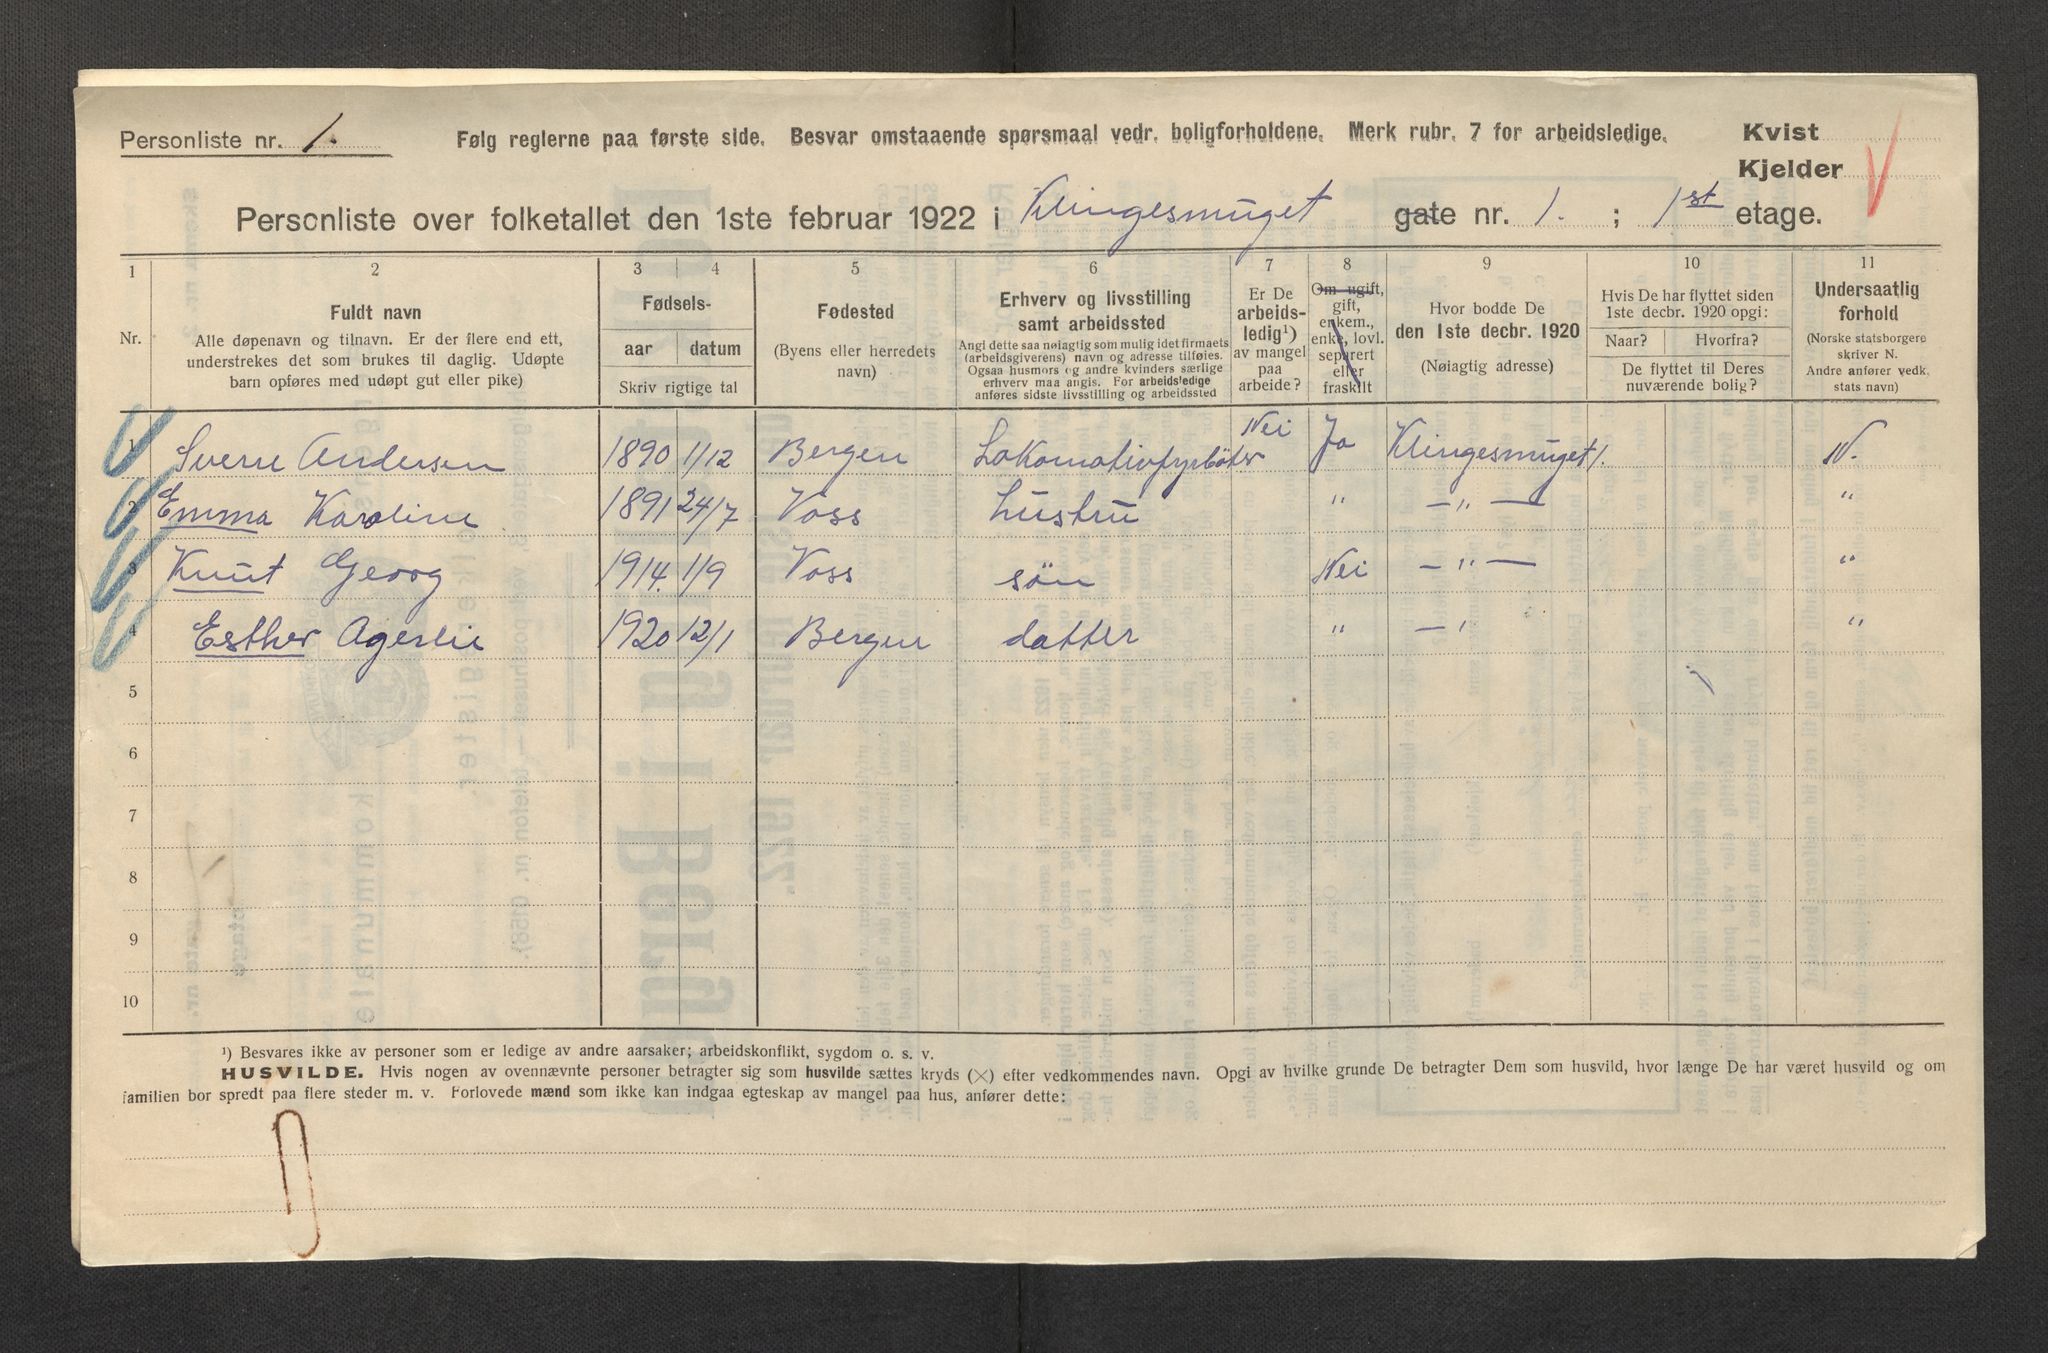 Personliste nr. 1. Følg reglerne paa første side. Besvar omstaaende spørsmaal vedr. boligforholdene. Merk rubr. 7 for arbeidsledige. Kvist
Kjelder
Personliste over folketallet den 1ste februar 1922 i Klingesmuget gate nr. 1. ; 1st etage.
1 2 3 4 5 6 7 8 9 10 11
Nr.
Fuldt navn
Alle døpenavn og tilnavn. Er der flere end ett,
understrekes det som brukes til daglig. Udøpte
barn opføres med udøpt gut eller pike)
Fødsels-
aar datum
Skriv rigtige tal
Fødested
(Byens eller herredets
navn)
Erhverv og livsstilling
samt arbeidssted
Angi dette saa nøiagtig som mulig idet firmaets
(arbeidsgiverens) navn og adresse tilføies.
Ogsaa husmors og andre kvinders særlige
erhverv maa angis. For arbeidsledige
anføres sidste livsstilling og arbeidssted
Er De
arbeids-
ledig¹)
av mangel
paa
arbeide?
Om ugift,
gift,
enkem.,
enke, lovl.
separert
eller
fraskilt
Hvor bodde De
den 1ste decbr. 1920
(Nøiagtig adresse)
Hvis De har flyttet siden
1ste decbr. 1920 opgi:
Naar? Hvorfra?
De flyttet til Deres
nuværende bolig?
Undersaatlig
forhold
(Norske statsborgere
skriver N.
Andre anfører vedk.
stats navn)
1 Sverre Andersen 1890 1/12 Bergen Lokomotivfyrbøter Nei Ja Klingesmuget 1. N.
2 Emma Karoline 1891 24/7 Voss hustru " — " — "
3 Knut Georg 1914. 1/9 Voss søn Nei — " — "
4 Esther Agerlie 1920 12/1 Bergen datter " — " "
5
6
7
8
9
10
¹) Besvares ikke av personer som er ledige av andre aarsaker; arbeidskonflikt, sygdom o. s. v.
HUSVILDE. Hvis nogen av ovennævnte personer betragter sig som husvild sættes kryds (×) efter vedkommendes navn. Opgi av hvilke grunde De betragter Dem som husvild, hvor længe De har været husvild og om
familien bor spredt paa flere steder m. v. Forlovede mænd som ikke kan indgaa egteskap av mangel paa hus, anfører dette: